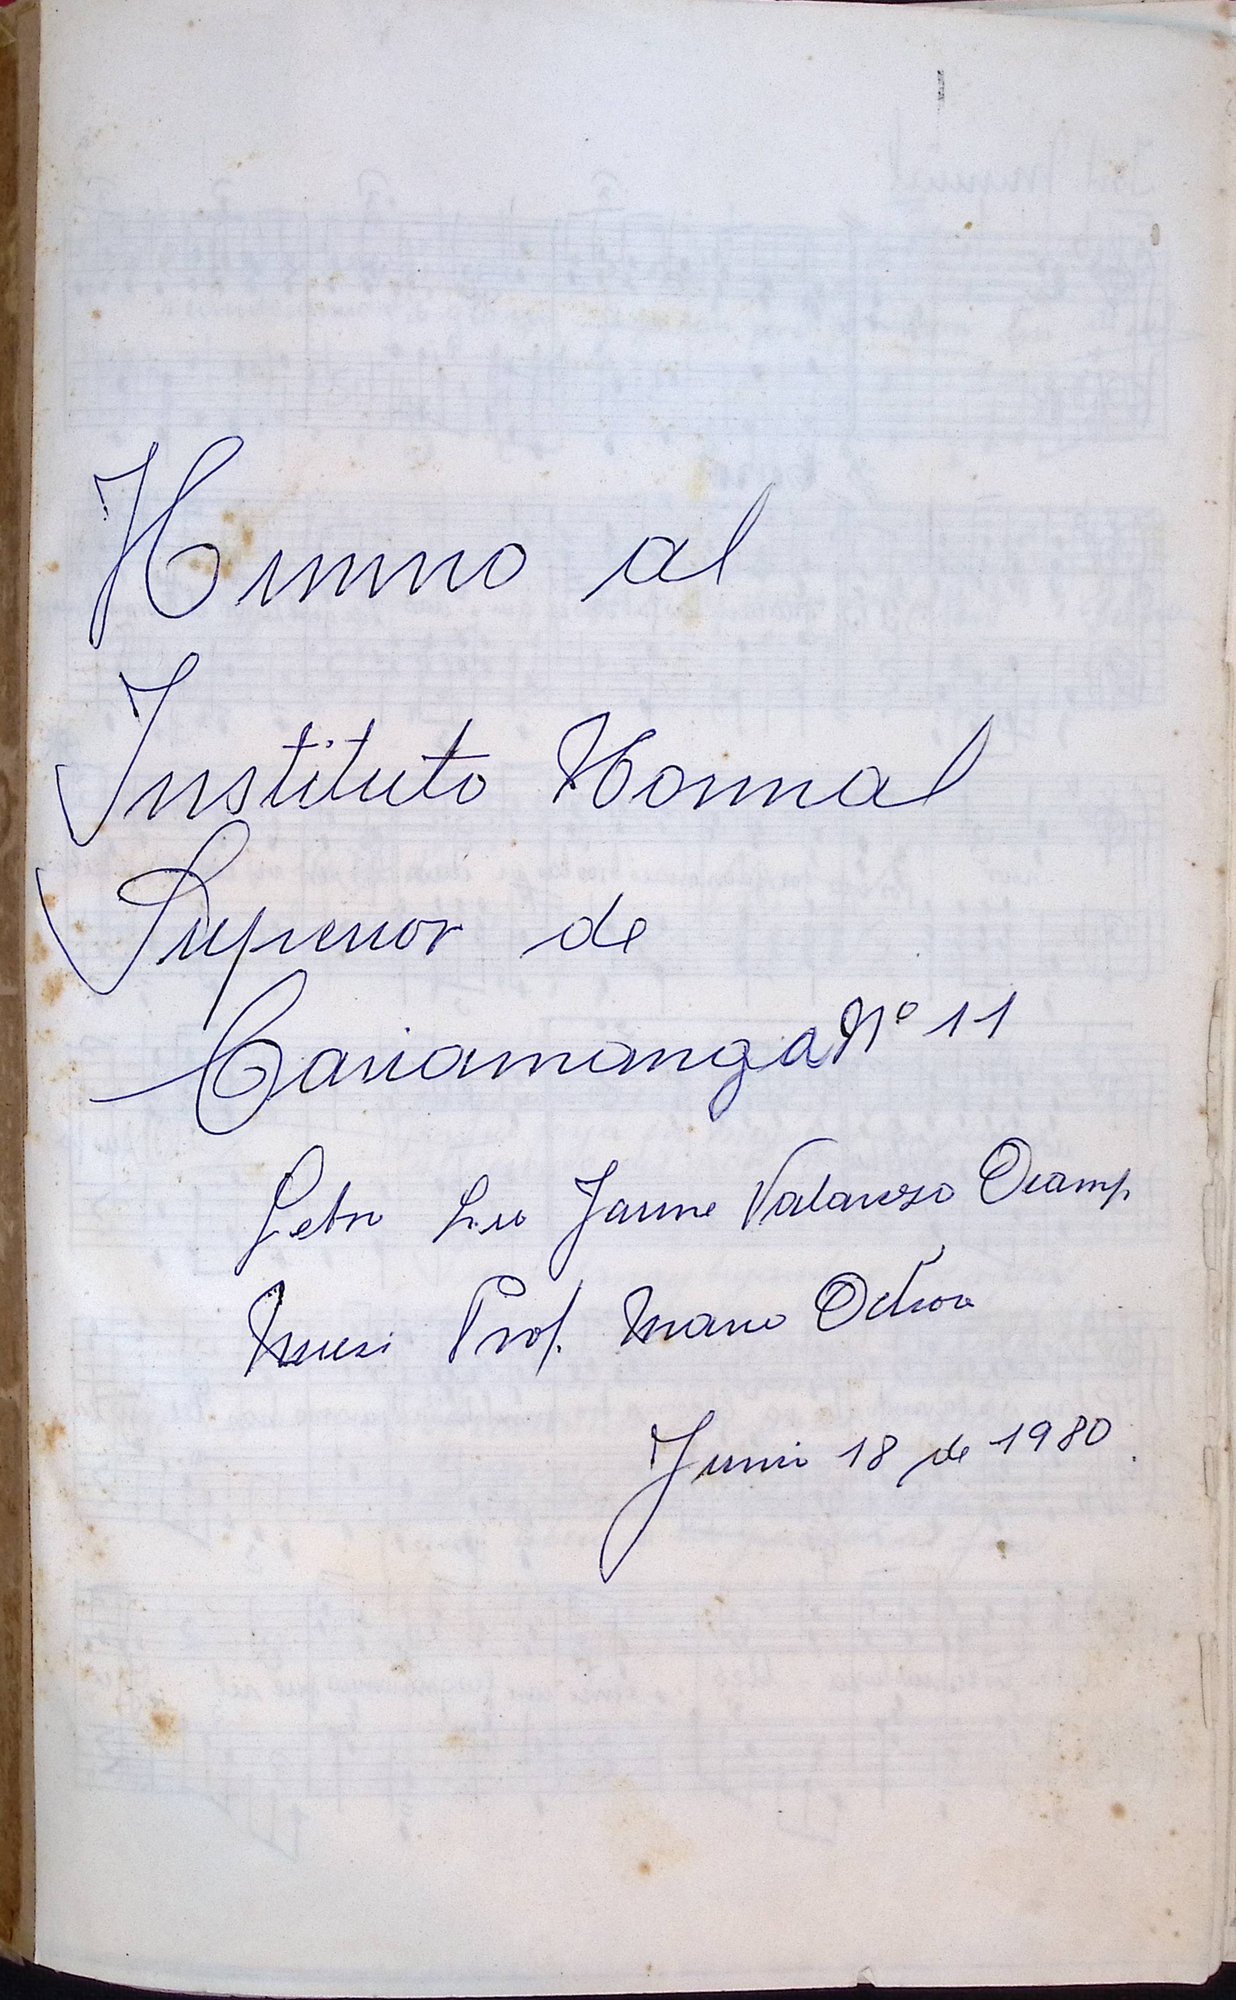 Himno al
Instituto Normal
Superior de
Cariamanga Nº 11
Letra Lic Jaime Valarezo Ocamp
Musi Prof. Mario Ochoa
Juni 18 de 1980.